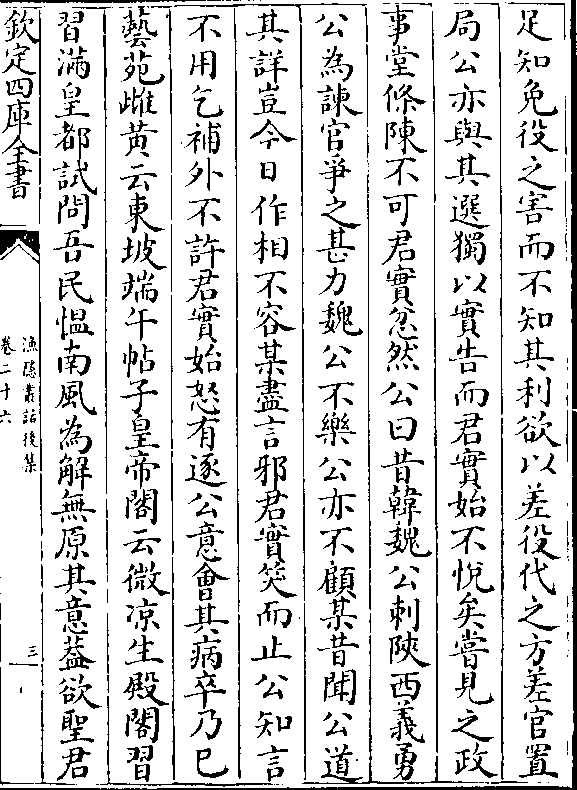 足知免役之害而不知其利欲以差役代之方差官置
局公亦與其選獨以實告而君實始不悅矣嘗見之政
事堂條陳不可君實忿然公曰昔韓魏公刺陝西義勇
公為諫官爭之甚力魏公不樂公亦不顧某昔聞公道
其詳豈今日作相不容某盡言邪君實笑而止公知言
不用乞補外不許君實始怒有逐公意會其病卒乃已
藝苑雌黃云東坡端午帖子皇帝閣云微凉生殿閣習
習滿皇都試問吾民愠南風為解無原其意葢欲聖君
欽定四庫全書
漁隱叢話後集
卷二十六
三